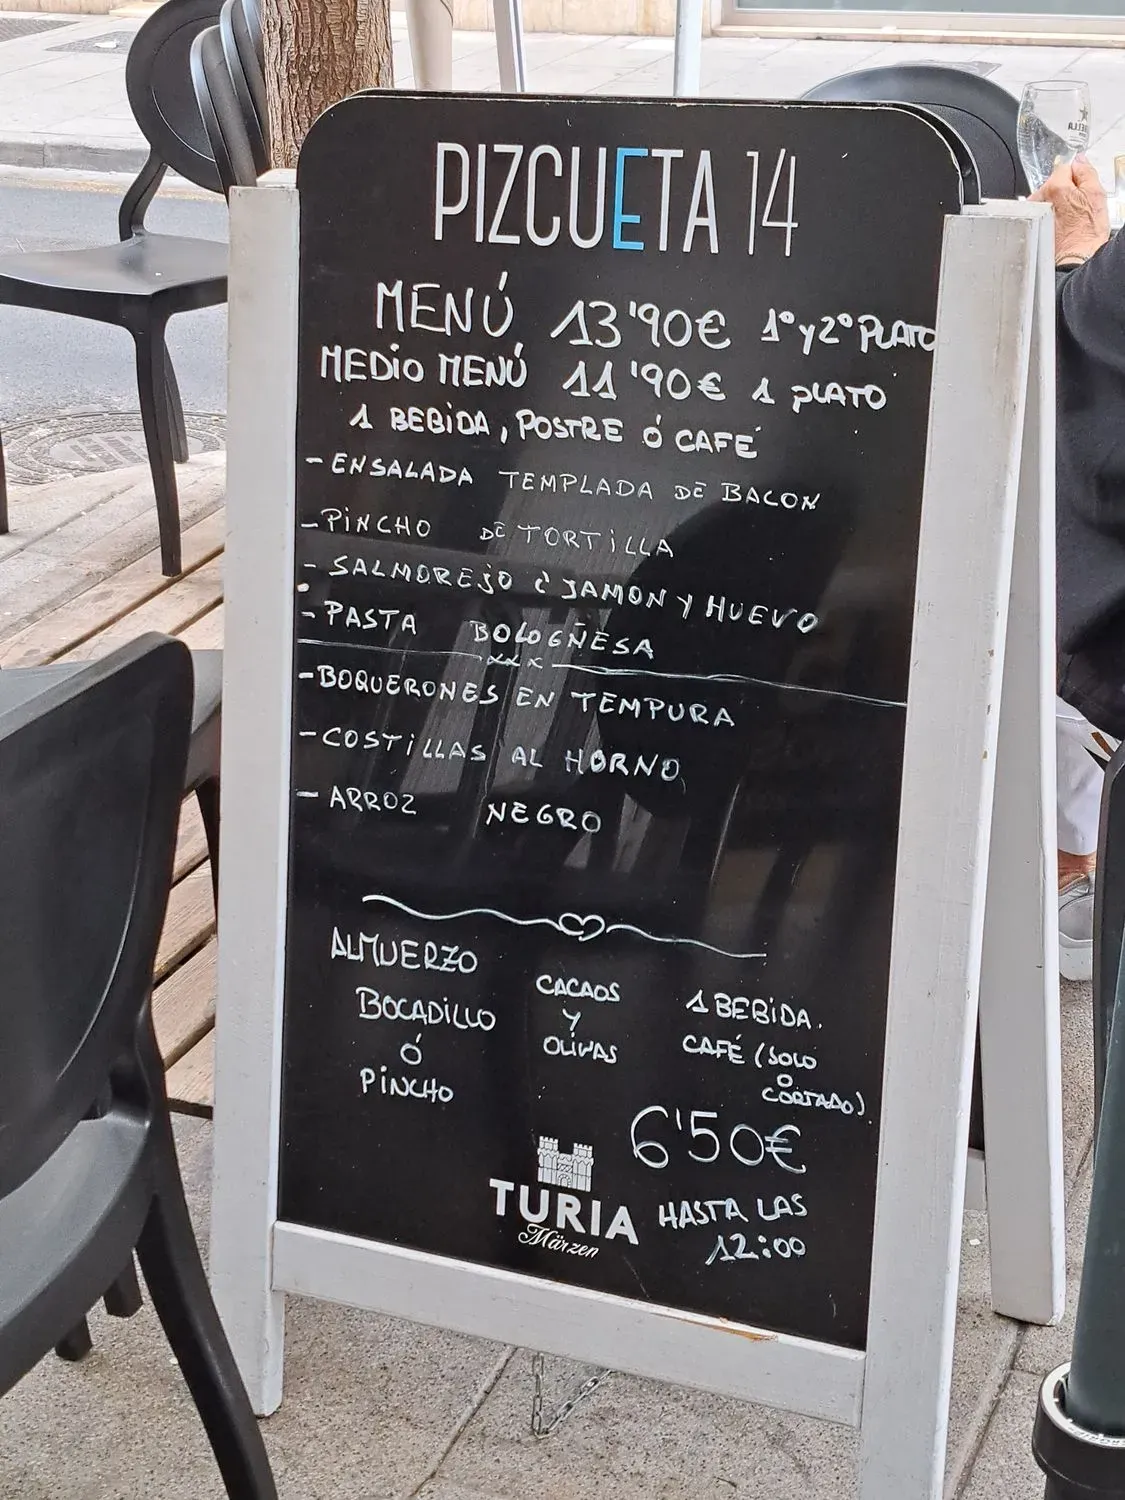 PIZCUETA 14
MENÚ 13'90€ 1º y 2º PLATO
MEDIO MENÚ 11'90€ 1 PLATO
1 BEBIDA, POSTRE Ó CAFÉ
- ENSALADA TEMPLADA DE BACON
- PINCHO DE TORTILLA
- SALMOREJO C JAMON Y HUEVO
- PASTA BOLOGÑESA
- BOQUERONES EN TEMPURA
- COSTILLAS AL HORNO
- ARROZ NEGRO
ALMUERZO
BOCADILLO
Ó
PINCHO
CACAOS
Y
OLIVAS
1 BEBIDA.
CAFÉ (SOLO
O
CORTADO)
6'50€
HASTA LAS
12:00
TURIA
Märzen